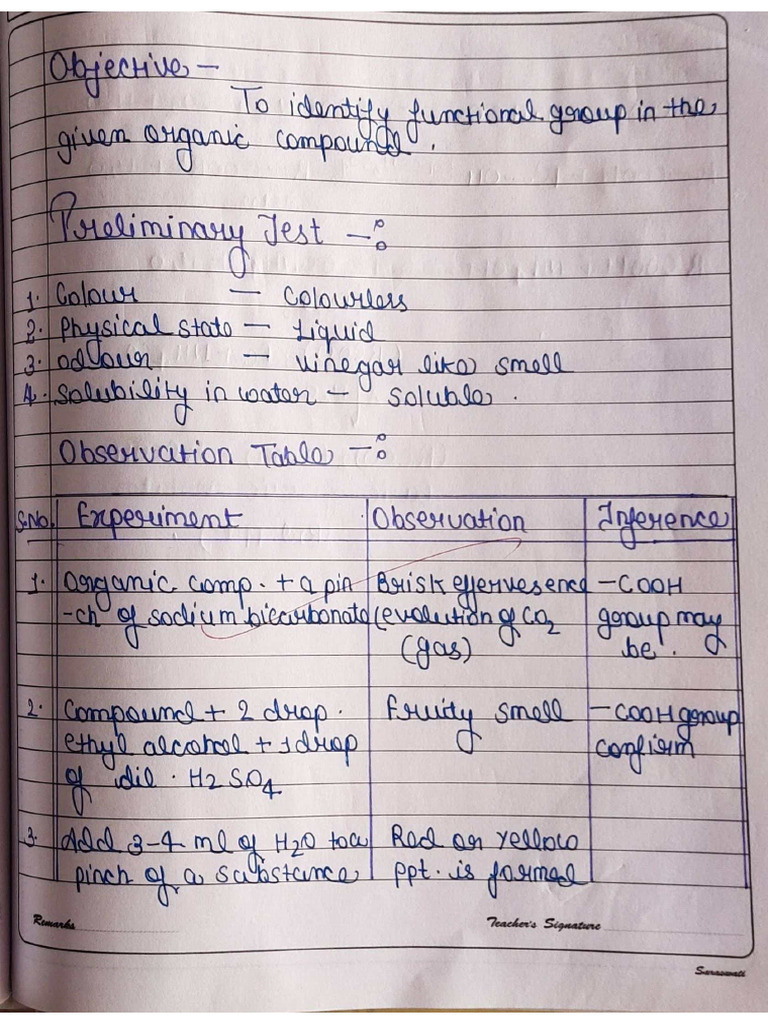 Objective -
To identify functional group in the
given organic compound.
Preliminary Test -:
1. Colour - Colourless
2. Physical state - Liquid
3. Odour - vinegar like smell
4. Solubility in water - soluble.
Observation Table -:
S.No. Experiment Observation Inference
1. Organic comp. + a pin Brisk effervesence -COOH
-ch of sodium bicarbonate (evolution of CO2 group may
(gas) be.
2. Compound + 2 drop. Fruity smell -COOH group
ethyl alcohol + 1 drop confirm
of dil. H2SO4
3. Add 3-4 ml of H2O to a Red or yellow
pinch of a substance ppt. is formed
Remarks Teacher's Signature
Saraswati